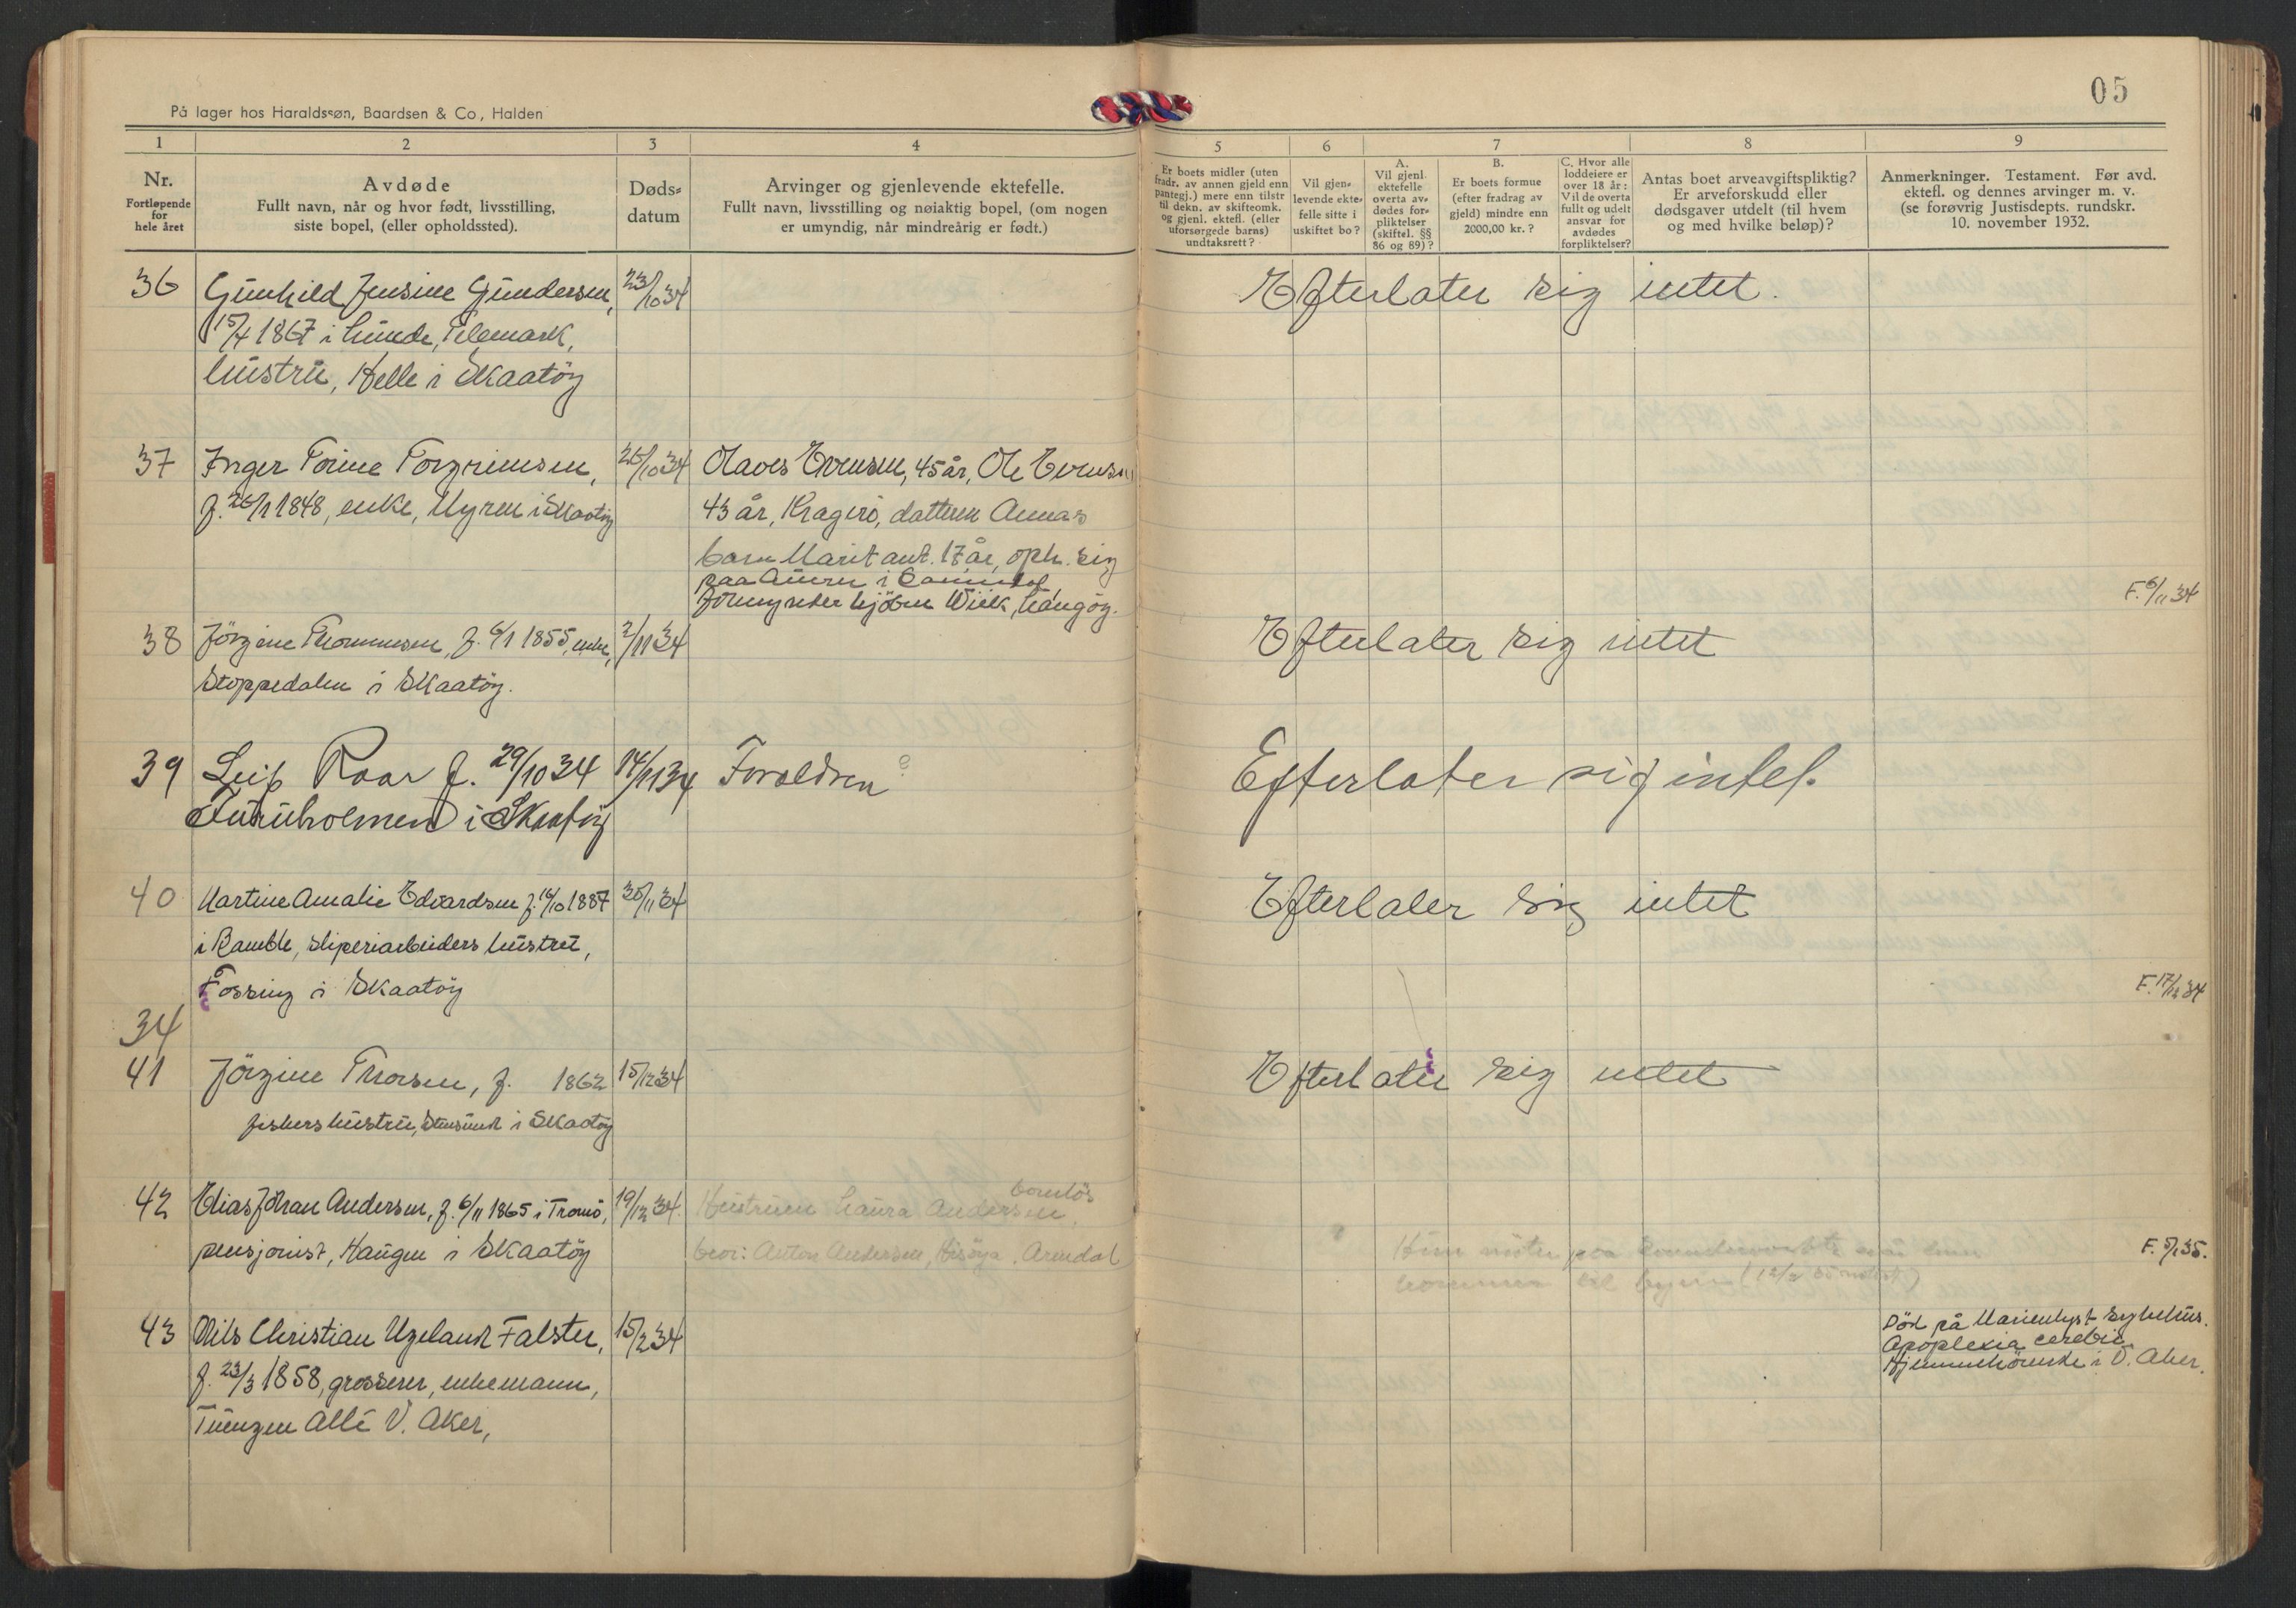 05
På lager hos Haraldssøn, Baardsen & Co, Halden
1 2 3 4 5 6 7 8 9
Nr.
Fortløpende
for
hele året
Avdøde
Fullt navn, når og hvor født, livsstilling,
siste bopel, (eller opholdssted).
Døds-
datum
Arvinger og gjenlevende ektefelle.
Fullt navn, livsstilling og nøiaktig bopel, (om nogen
er umyndig, når mindreårig er født.)
Er boets midler (uten
fradr. av annen gjeld enn
pantegj.) mere enn tilstr
til dekn. av skifteomk.
og gjenl. ektefl. (eller
uforsørgede barns)
undtaksrett?
Vil gjen-
levende ekte-
felle sitte i
uskiftet bo?
A.
Vil gjenl.
ektefelle
overta av-
dødes for-
pliktelser
(skiftel. §§
86 og 89)?
B.
Er boets formue
(efter fradrag av
gjeld) mindre enn
2000,00 kr.?
C. Hvor alle
loddeiere er
over 18 år:
Vil de overta
fullt og udelt
ansvar for
avdødes
forpliktelser?
Antas boet arveavgiftspliktig?
Er arveforskudd eller
dødsgaver utdelt (til hvem
og med hvilke beløp)?
Anmerkninger. Testament. Før avd.
ektefl. og dennes arvinger m. v.
(se forøvrig Justisdepts. rundskr.
10. november 1932.
36 Gunhild Jensine Gundersen, 23/10 34 Efterlater sig intet.
15/4 1867 i Lunde, Telemark,
hustru, Helle i Skaatöy
37 Inger Torine Torgrimsen, 26/10 34 Olaves Evensen, 45 år, Ole Evensen
f. 26/1 1848, enke, Myren i Skaatöy
43 år, Kragerö, datteren Annas
barn Marit ant. 17 år, oph. sig
paa
formynder Wiik, Langöy.
F. 6/11 34
38 Jörgine Thommesen, f. 6/1 1855, enke, 2/11 34 Efterlater sig intet
Stoppedalen i Skaatöy.
39 Leif Roar f. 29/10 34 14/11 34 Foreldren Efterlater sig intet.
Furuholmen i Skaatöy
40 Martine Amalie Edvardsen f. 16/10 1887 30/11 34 Efterlater sig intet
i Bamble, sliperiarbeiders hustru,
Fossing i Skaatöy
F. 17/12 34
34
41 Jörgine Thorsen, f. 1862 15/12 34 Efterlater sig intet
fiskers hustru, Stensund i Skaatöy
42 Elias Johan Andersen, f. 6/11 1865 i Tromö, 19/12 34. Hustruen Laura Andersen, barnlös
pensjonist, Haugen i Skaatöy
bror: Anton Andersen, Hisöya, Arendal
Hun möter paa
til byen
F. 5/1 35.
43 Nils Christian Ugeland Falster, 15/2 34
f. 23/3 1858, grosserer, enkemann,
Tuengen Allé V. Aker,
Död på Marienlyst sykehus.
Apoplexia cerebri.
Hjemmehörende i V. Aker.